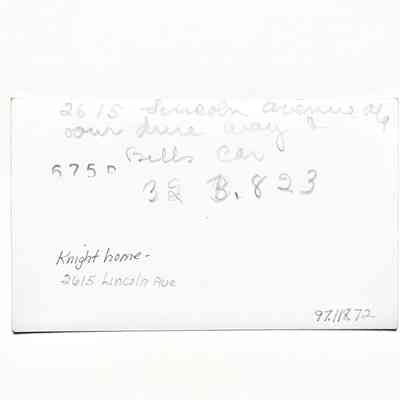 2615 Lincoln avenue
our drive way &
Bills car
5750
32 B.823
Knight home-
2615 Lincoln Ave
97.118.72